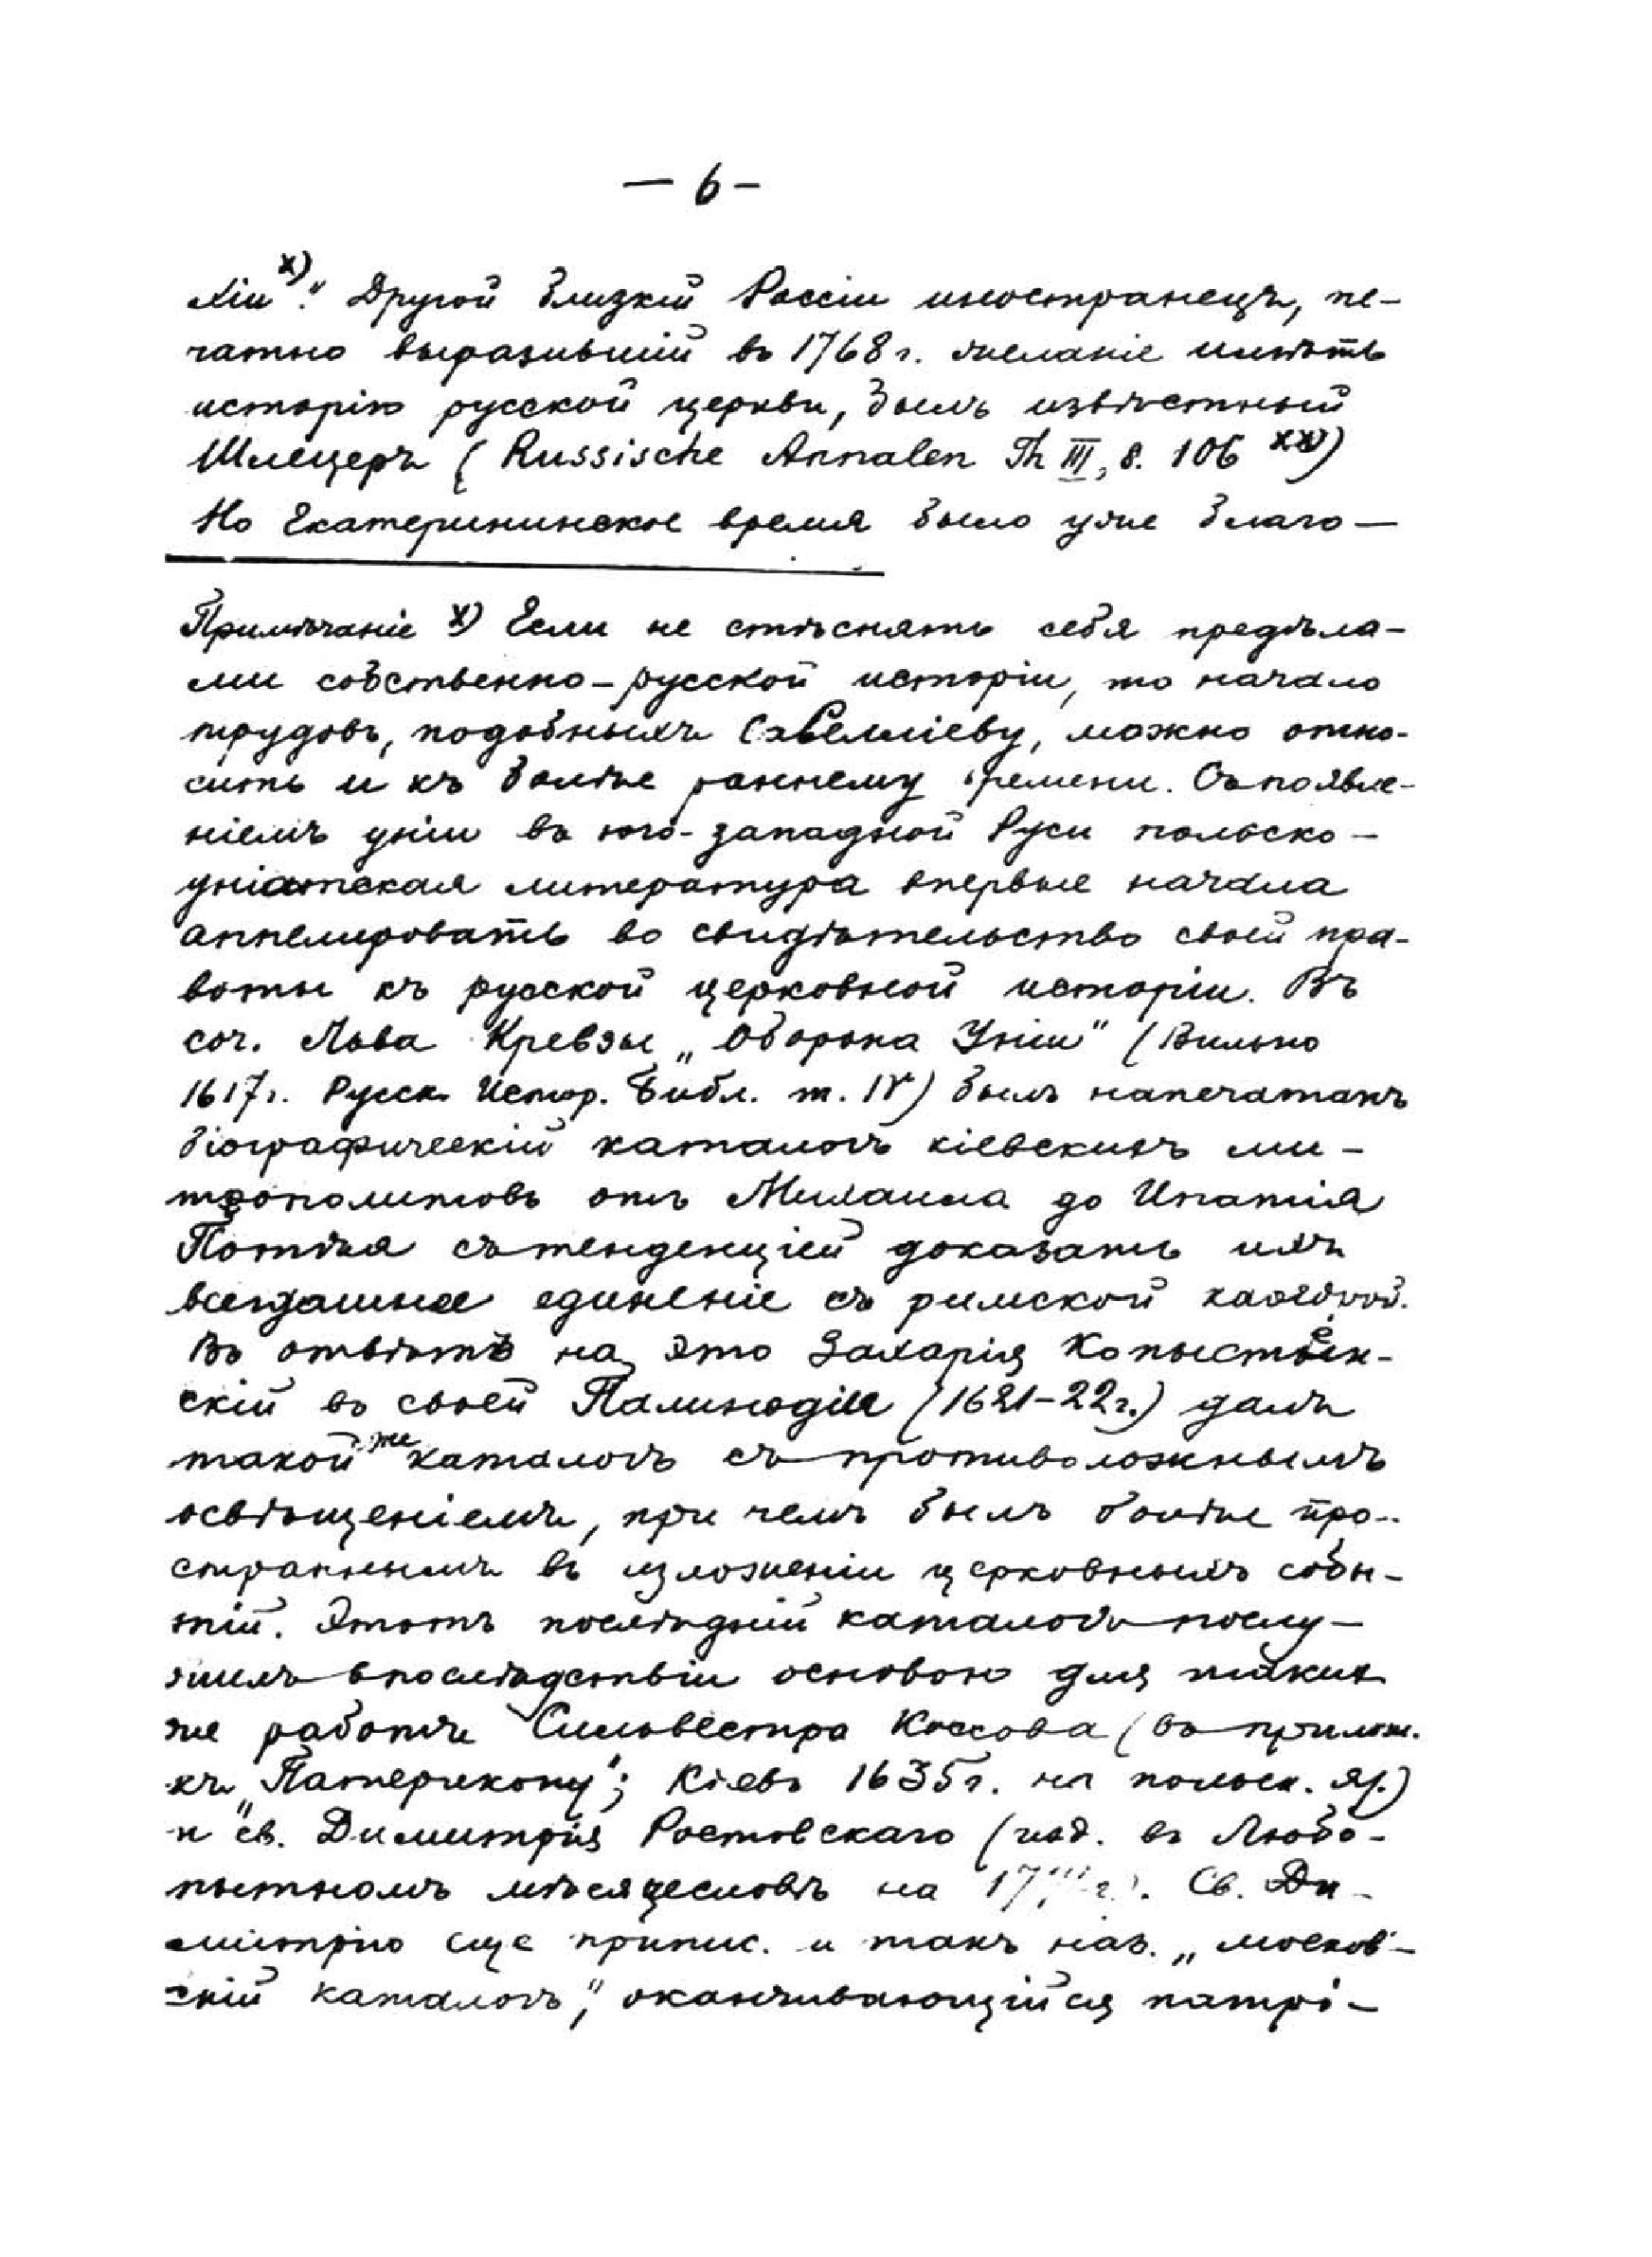 — 6 —
хіи х)." Другой близкій Россіи иностранецъ, пе-
чатно выразившій въ 1768 г. желаніе имѣть
исторію русской церкви, былъ извѣстный
Шлецеръ (Russische Annalen Th III, S. 106 хх)
Но Екатерининское время было уже благо—
Примѣчаніе х) Если не стѣснять себя предѣла-
ми собственно-русской исторіи, то начало
трудовъ, подобныхъ Селлiеву, можно отно-
сить и къ болѣе раннему времени. Съ появле-
ніемъ уніи въ юго-западной Руси польско-
уніатская литература впервые начала
аппелировать во свидѣтельство своей пра-
воты къ русской церковной исторіи. Въ
соч. Льва Кревзы „Оборона Уніи" (Вильно
1617 г. Русск. Истор. Библ. т. IV) былъ напечатанъ
біографическій каталогъ кіевскихъ ми-
трополитовъ отъ Михаила до Ипатія
Потѣя съ тенденціей доказать ихъ
всегдашнее единеніе съ римской каѳедрой.
Въ отвѣтъ на это Захарія Копыстен-
скій въ своей Палинодіи (1621-22 г.) далъ
такой же каталогъ съ противоложнымъ
освѣщеніемъ, при чемъ былъ болѣе про-
страннымъ въ изложеніи церковныхъ собы-
тій. Этотъ послѣдній каталогъ послу-
жилъ впослѣдствіи основою для таких
же работъ Сильвестра Коссова (въ прилож.
къ „Патерикону"; Кіевъ 1635 г. на польск. яз.)
и св. Димитрія Ростовскаго (изд. въ Любо-
пытномъ мѣсяцесловѣ на 17 г.). Св. Ди-
митрію еще припис. и такъ наз. „москов-
скій каталогъ", оканчивающійся патрі-